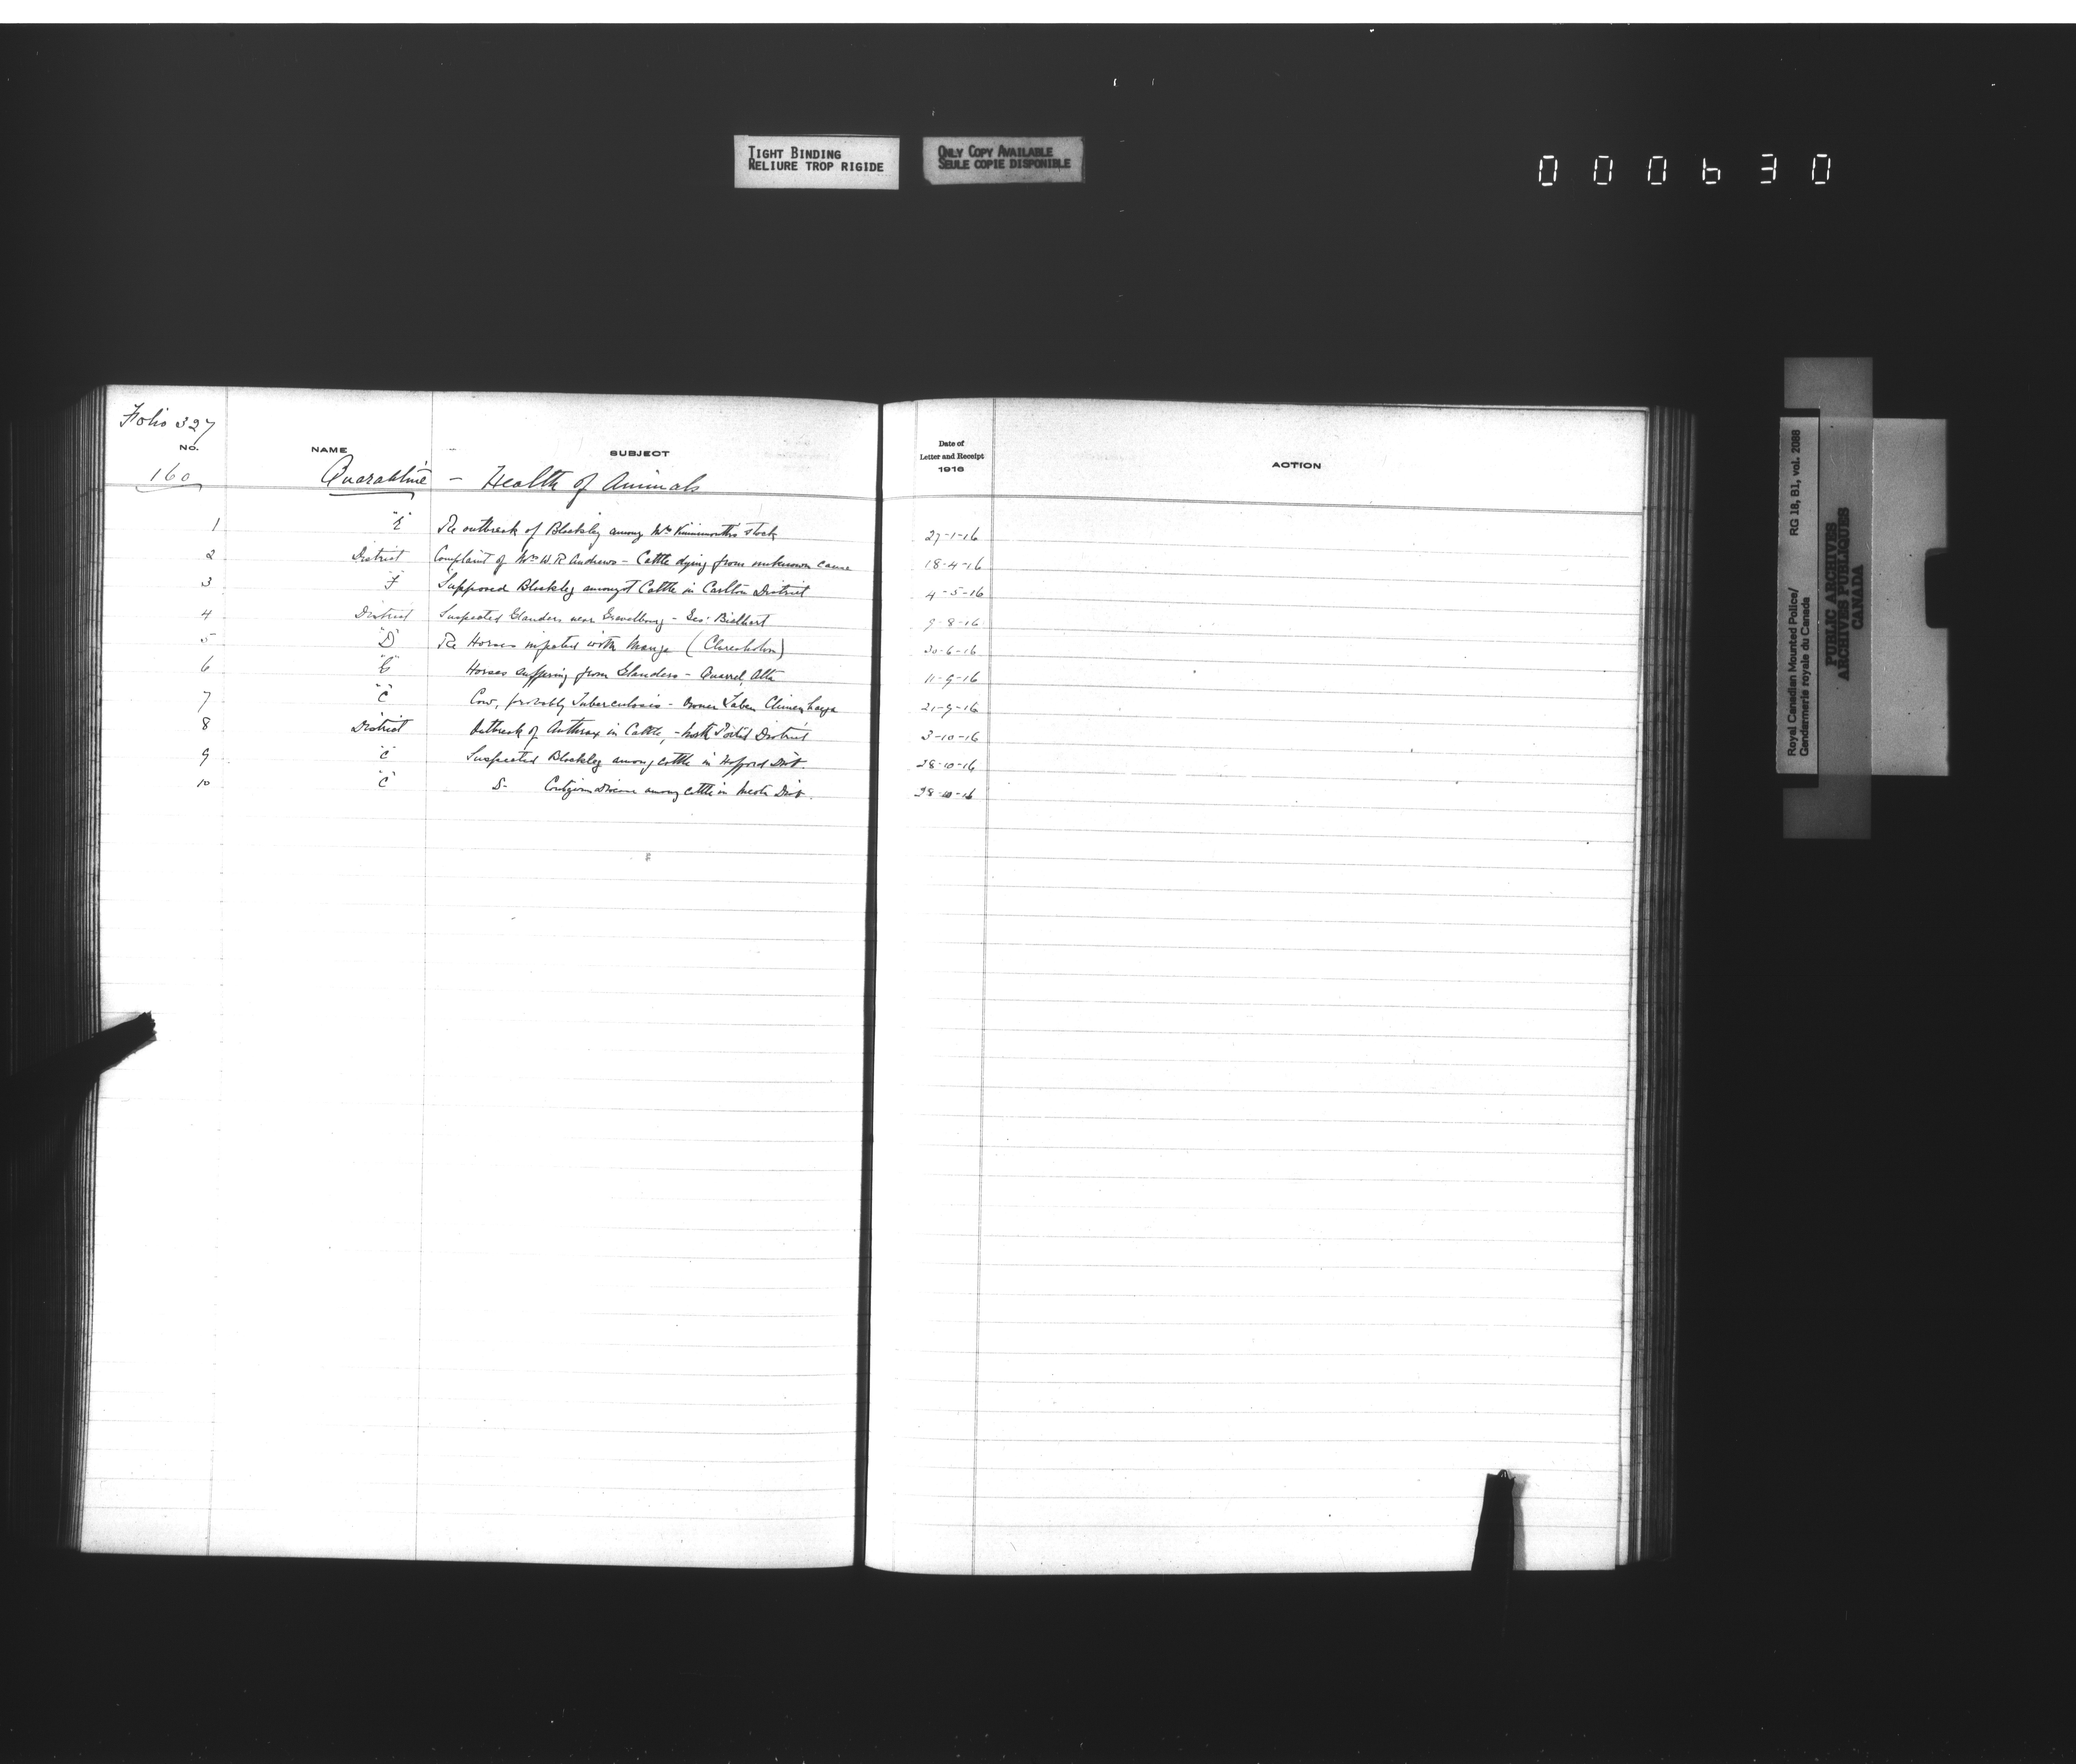 TIGHT BINDING
RELIURE TROP RIGIDE
ONLY COPY AVAILABLE
SEULE COPIE DISPONIBLE
000630
Folio 327
No. NAME SUBJECT
160 Quarantine - Health of Animals
Date of
Letter and Receipt
1916
ACTION
1 "E" Re outbreak of Blackleg among Mr Kinnemonth's stock 27-1-16
2 District Complaint of Mr W.R. Andrews - Cattle dying from unknown cause 18-4-16
3 "F" Supposed Blackleg amongst Cattle in Carlton District 4-5-16
4 District Suspected Glanders near Gravelbourg - Geo: 9-8-16
5 "D" Re Horses infected with Mange (Claresholm) 20-6-16
6 "G" Horses suffering from Glanders - Quarrel, Alta 11-9-16
7 "C" Cow, probably Tuberculosis - Owner Laban Climenhaga 21-9-16
8 District Outbreak of Anthrax in Cattle, - North Portal District 3-10-16
9 "C" Suspected Blackleg among cattle in Hafford Dist. 28-10-16
10 "C" S- Contagious Disease among cattle in Meota Dist. 28-10-16
Royal Canadian Mounted Police/ RG 18, B1, vol. 2088
Gendarmerie royale du Canada
PUBLIC ARCHIVES
ARCHIVES PUBLIQUES
CANADA